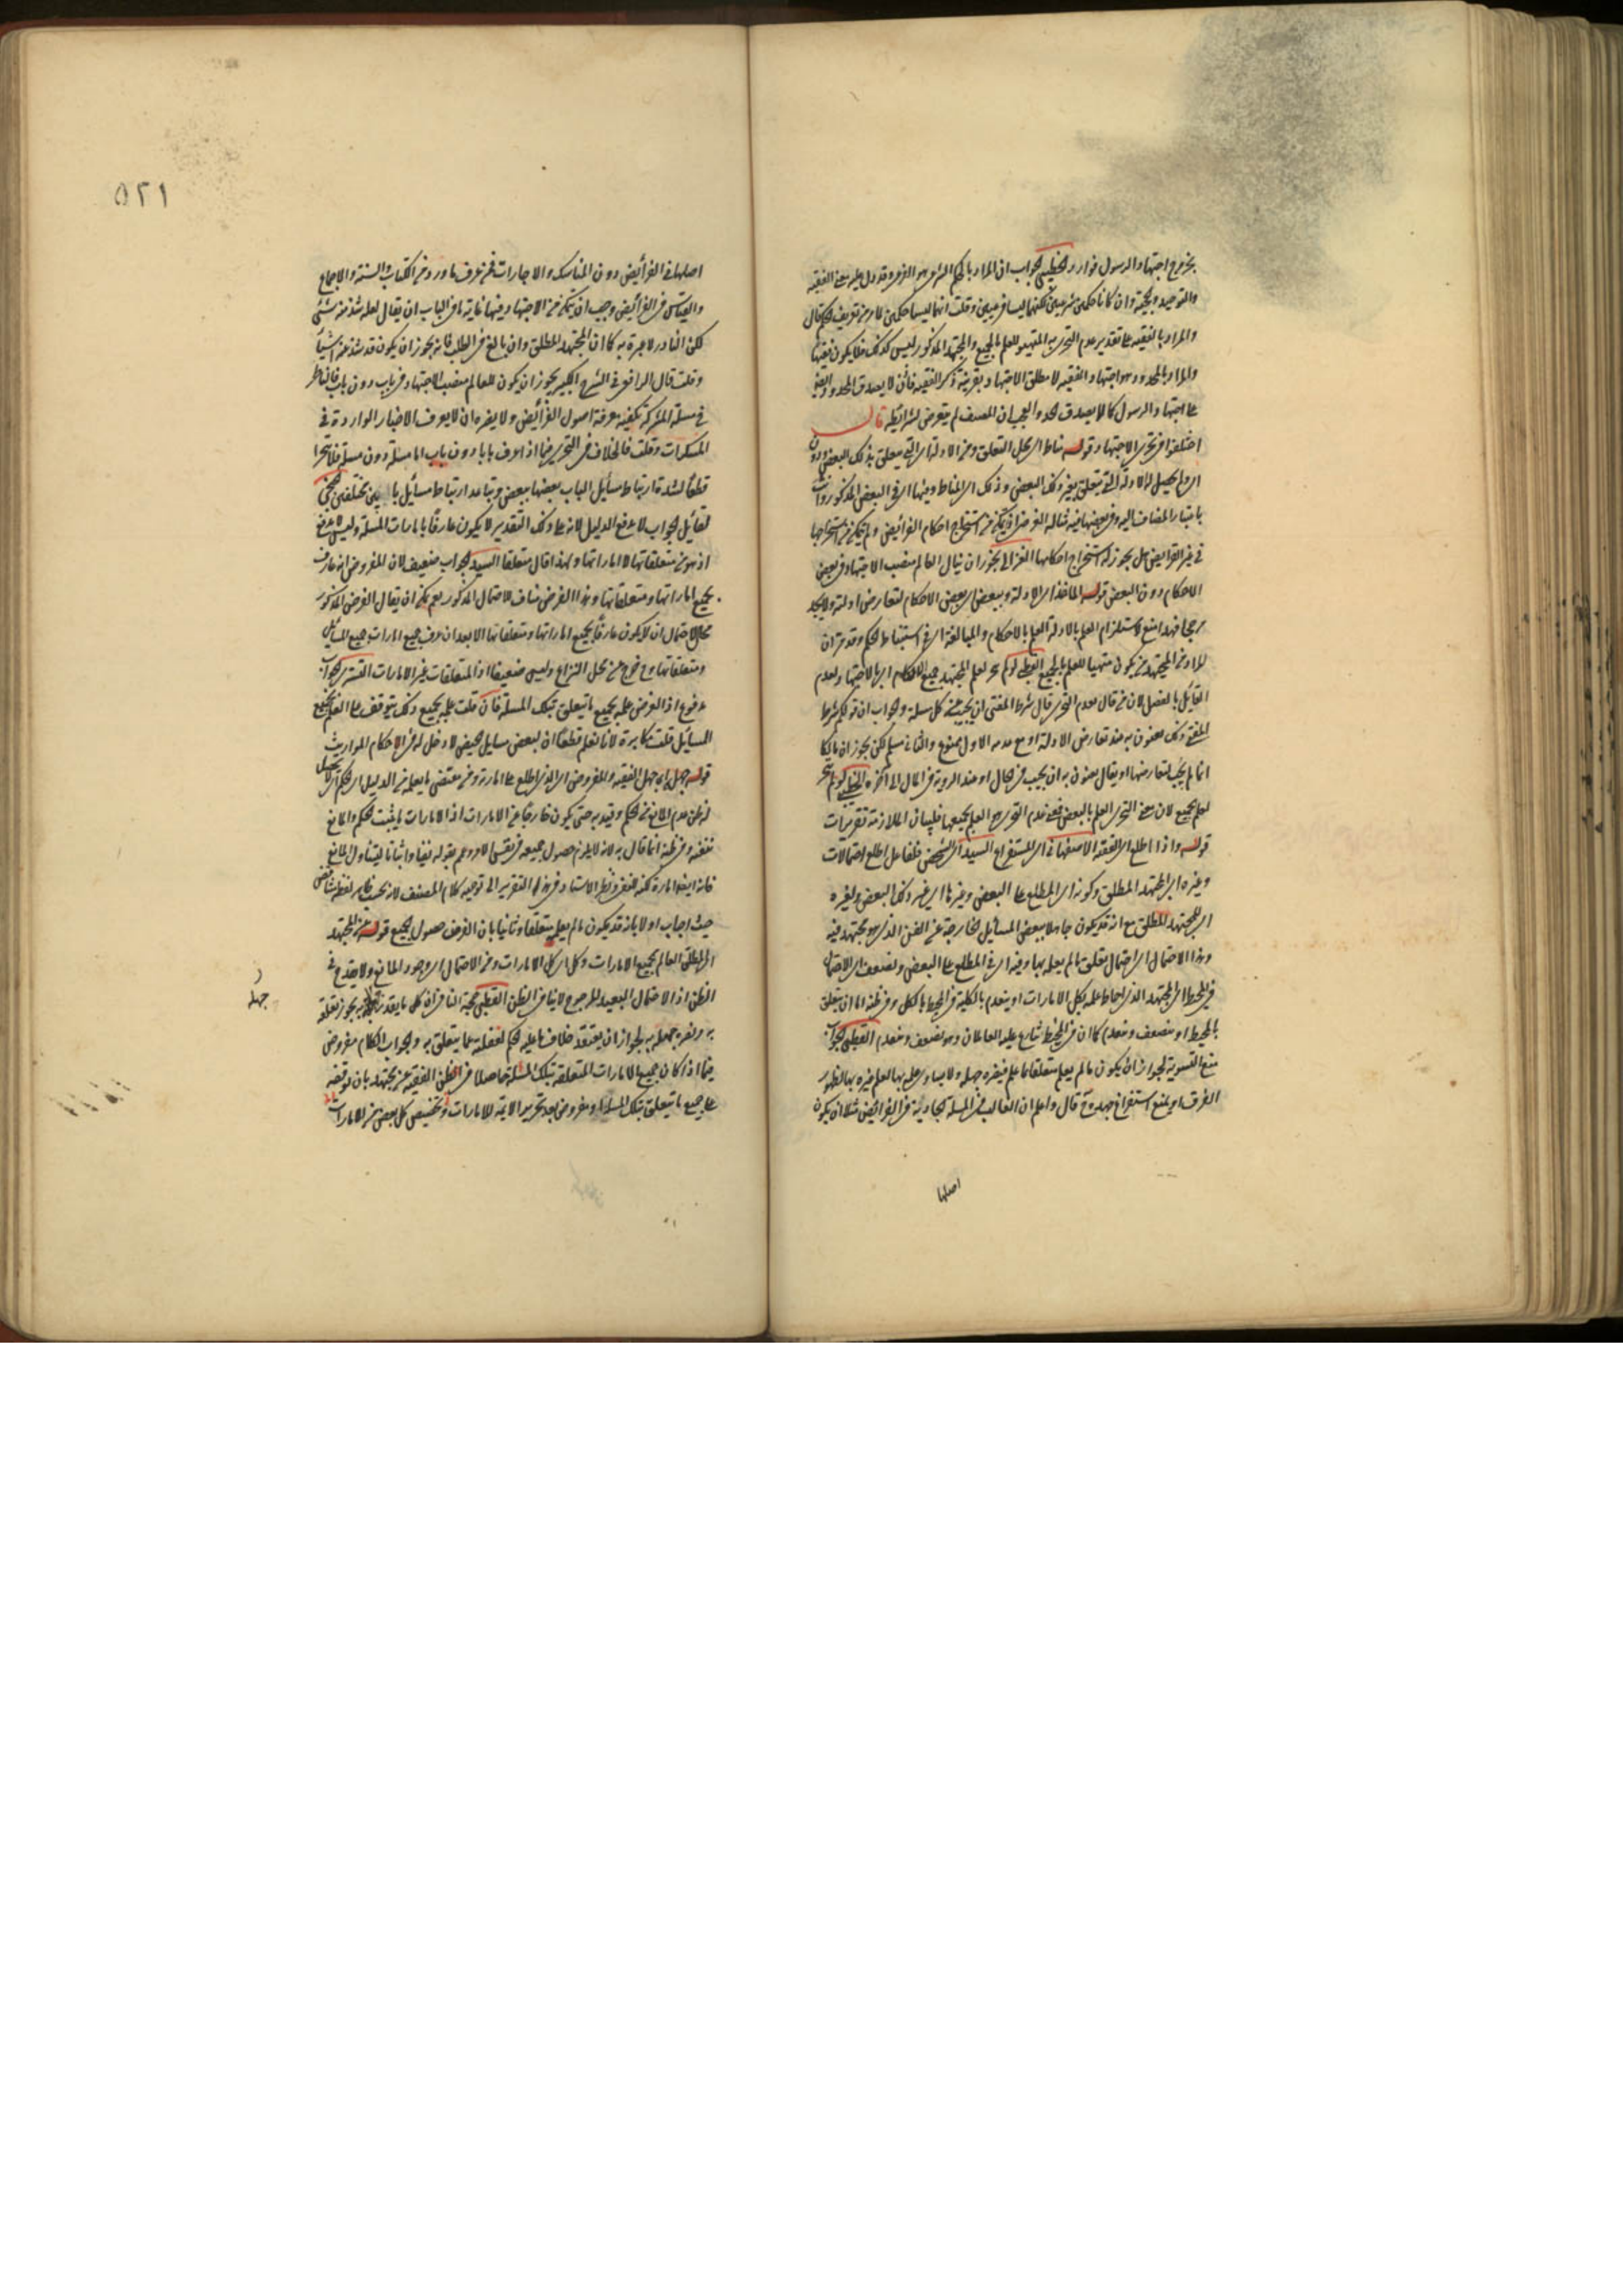 بخروج اجتهاد الرسول فوارد الخطيبي الجواب ان المراد بالحكم الشرعي هو الفرعي وقد دل عليه معنى الفقيه
والتوحيد والحجية وان كانا حكمين شرعيين لكنهما ليسا فرعيين وقلت انهما ليسا حكمين لما مر من تعريف الحكم قال
والمراد بالفقيه على تقدير عدم التجزي المتهيئ للعلم بالجميع والمجتهد المذكور ليس كذلك فلا يكون فقيها
والمراد بالمحدود هو اجتهاد الفقيه لا مطلق الاجتهاد بقرينة ذكر الفقيه فاذن لا يصدق الحد
على اجتهاد الرسول كما لا يصدق المحدود والعجب ان المصنف لم يتعرض لشرائطه قال
اختلفوا في تجزي الاجتهاد قوله مناط اي محل التعلق ومن الادلة اي التي يتعلق بذلك البعض دون
اي ولم يحصل له الادلة التي تتعلق بغير ذلك البعض وذلك اي المناط ومنها اي في البعض المذكور
باعتبار المضاف اليه وفي بعضها فيه مثاله الفرض ان يتمكن من استخراج احكام الفرائض ولم يتمكن من استخراجها
في غير الفرائض هل يجوز له استخراج احكامها الغزالي يجوز ان ينال العالم منصب الاجتهاد في بعض
الاحكام دون البعض قوله المأخذ اي الادلة وببعض اي ببعض الاحكام لتعارض ادلته ولا يجد
مرجحا فهذا منع لاستلزام العلم بالادلة العلم بالاحكام والمبالغة اي في استنباط الحكم وقد مر ان
المراد من المجتهد من يكون متهيئا للعلم بالجميع القطبي لو لم يتجز لعلم المجتهد جميع الاحكام اي بالاجتهاد لعدم
القائل بالفصل لان من قال بعدم التجزي قال شرط المفتي ان يجيب عن كل مسئلة والجواب ان قولكم شرط
المفتي ذلك تعنون به عند تعارض الادلة او مع عدمه الاول ممنوع والثاني مسلم لكن يجوز ان مالكا
انما لم يجب لتعارضها او يقال تعنون به ان يجيب في الحال او عند الروية في المآل الى آخره الخطيبي لو لم يتجز
لعلم الجميع لان معنى التجزي العلم بالبعض فمعنى عدم التجزي العلم بجميعها فلبيان الملازمة تقريرات
قوله واذا اطلع اي الفقيه الاصفهاني اي المستفرغ السيد اي الشخص فلفاعل اطلع احتمالات
وغيره اي المجتهد المطلق وكونه اي المطلع على البعض وغيرها اي غير ذلك البعض ولغيره
اي للمجتهد المطلق مع انه قد يكون جاهلا ببعض المسائل الخارجة عن الفن الذي هو مجتهد فيه
وهذا الاحتمال اي احتمال تعلق ما لم يعلم بها وفيه اي في المطلع على البعض ويضعف اي الاحتمال
في المحيط اي المجتهد الذي احاط علمه بكل الامارات او ينعدم بالكلية في المحيط بالكل وفي ظنه اما ان يتعلق
بالمحيط او بيضعف وينعدم كما ان في المحيط تنازع عليه العاملان وهو يضعف وينعدم القطبي الجواب
منع التسوية لجواز ان يكون ما لم يعلم متعلقا بما علم فيضره جهله ولا يساوي علمه بها العلم غيره بها لظهور
الفرق او يمنع استفراغ جهده قال واعلم ان الغالب في المسئلة الحادثة في الفرائض مثلا ان يكون
اصلها
٥٢١
اصلها في الفرائض دون المناسك والاجارات فمن عرف ما ورد من الكتاب والسنة والاجماع
والقياس في الفرائض وجب ان يتمكن من الاجتهاد فيها غاية ما في الباب ان يقال لعله شذ منه شئ
لكن النادر لا عبرة به كما ان المجتهد المطلق وان بالغ في الطلب فانه يجوز ان يكون قد شذ عنه اشياء
وقلت قال الرافعي في الشرح الكبير يجوز ان يكون للعالم منصب الاجتهاد في باب دون باب فالناظر
في مسئلة المشركة تكفيه معرفة اصول الفرائض ولا يضره ان لا يعرف الاخبار الواردة في
المسكرات وقلت فالخلاف في التجزي فيما اذا عرف بابا دون باب اما مسئلة دون مسئلة فلا تتجزا
قطعا لشدة ارتباط مسائل الباب بعضها ببعض وتباعد ارتباط مسائل بابين مختلفين
لقائل الجواب لا يدفع الدليل لانه على ذلك التقدير لا يكون عارفا بامارات المسئلة وليس بدفع
اذ هو من متعلقاتها لا اماراتها ولهذا قال متعلقا السيد الجواب ضعيف لان المفروض انه عارف
بجميع اماراتها ومتعلقاتها وهذا الفرض مناف للاحتمال المذكور نعم يمكن ان يقال الفرض المذكور
محال لاحتمال ان لا يكون عارفا بجميع اماراتها ومتعلقاتها الا بعد ان عرف جميع امارات جميع المسائل
ومتعلقاتها وهو خروج عن محل النزاع وليس ضعيفا اذ المتعلقات غير الامارات التستري الجواب
مدفوع اذ الفرض علمه بجميع ما يتعلق بتلك المسئلة فان قلت علمه بجميع ذلك يتوقف على العلم بجميع
المسائل قلت مكابرة لانا نعلم قطعا ان لبعض مسايل الحيض لا دخل له في الاحكام المواريث
قوله جهل اي جهل الفقيه والمفروض اي الذي اطلع على امارة ومن مقتضى ما يعلم من الدليل اي الحكم
لو ظن عدم المانع من الحكم وقيد به حتى يكون خارجا عن الامارات اذ الامارات ما يثبت الحكم والمانع
ينفيه وفي ظنه انما قال به لانه لا يلزم حصول جميعه في نفس الامر وعم بقوله نفيا واثباتا ليتناول المانع
فانه ايضا امارة لكنه للنفي ونظر الاستاد في هذا التقرير الى توجيه كلام المصنف لانه بحسب ظاهر لفظه متناقض
حيث اجاب اولا بانه قد يكون ما لم يعلم متعلقا وثانيا بان الفرض حصول الجميع قوله عن المجتهد
اي المطلق العالم بجميع الامارات وكل اي كل الامارات ومن الاحتمال اي وجود المانع ولا يقدح في
الظن اذ الاحتمال البعيد المرجوح لا ينافي الظن القطبي حجة النافي ان كل ما يقدر جهله به يجوز تعلقه
به ويضره جهله به لجواز ان يعتقد خلاف ما عليه الحكم لغفلته عما يتعلق به والجواب الكلام مفروض
فيما اذا كان جميع الامارات المتعلقة بتلك المسئلة حاصلا في ظن الفقيه عن مجتهد بان توقفه
على جميع ما يتعلق بتلك المسئلة او مفروض بعد تحرير الائمة للامارات وتخصيص كل بعض من الامارات
جهله